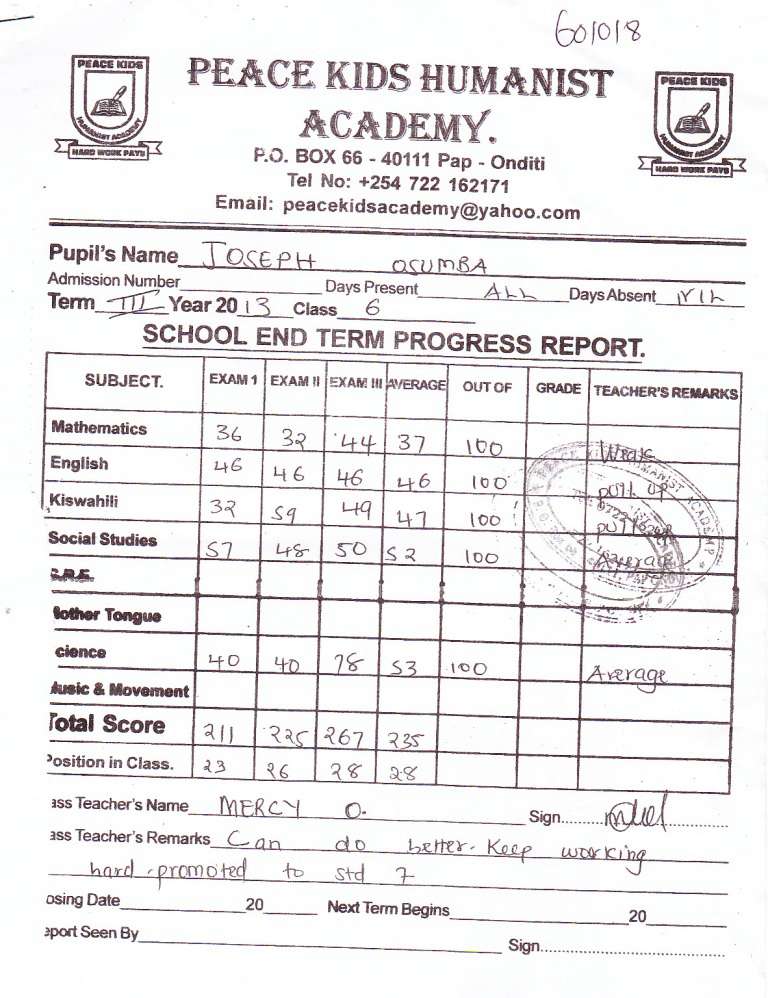 601018
PEACE KIDS
HUMANIST ACADEMY
HARD WORK PAYS
PEACE KIDS HUMANIST
ACADEMY.
PEACE KIDS
HUMANIST ACADEMY
HARD WORK PAYS
P.O. BOX 66 - 40111 Pap - Onditi
Tel No: +254 722 162171
Email: peacekidsacademy@yahoo.com
Pupil's Name JOSEPH OSUMBA
Admission Number Days Present ALL Days Absent NIL
Term III Year 2013 Class 6
SCHOOL END TERM PROGRESS REPORT.
SUBJECT. EXAM 1 EXAM II EXAM III AVERAGE OUT OF GRADE TEACHER'S REMARKS
Mathematics 36 32 44 37 100 Weak
English 46 46 46 46 100 pull up
Kiswahili 32 59 49 47 100 pull up
Social Studies 57 48 50 52 100 Average
C.R.E.
other Tongue
cience 40 40 78 53 100 Average
Music & Movement
Total Score 211 225 267 235
Position in Class. 23 26 28 28
ass Teacher's Name MERCY O. Sign
ass Teacher's Remarks Can do better. Keep working
hard. promoted to std 7
osing Date 20 Next Term Begins 20
eport Seen By Sign